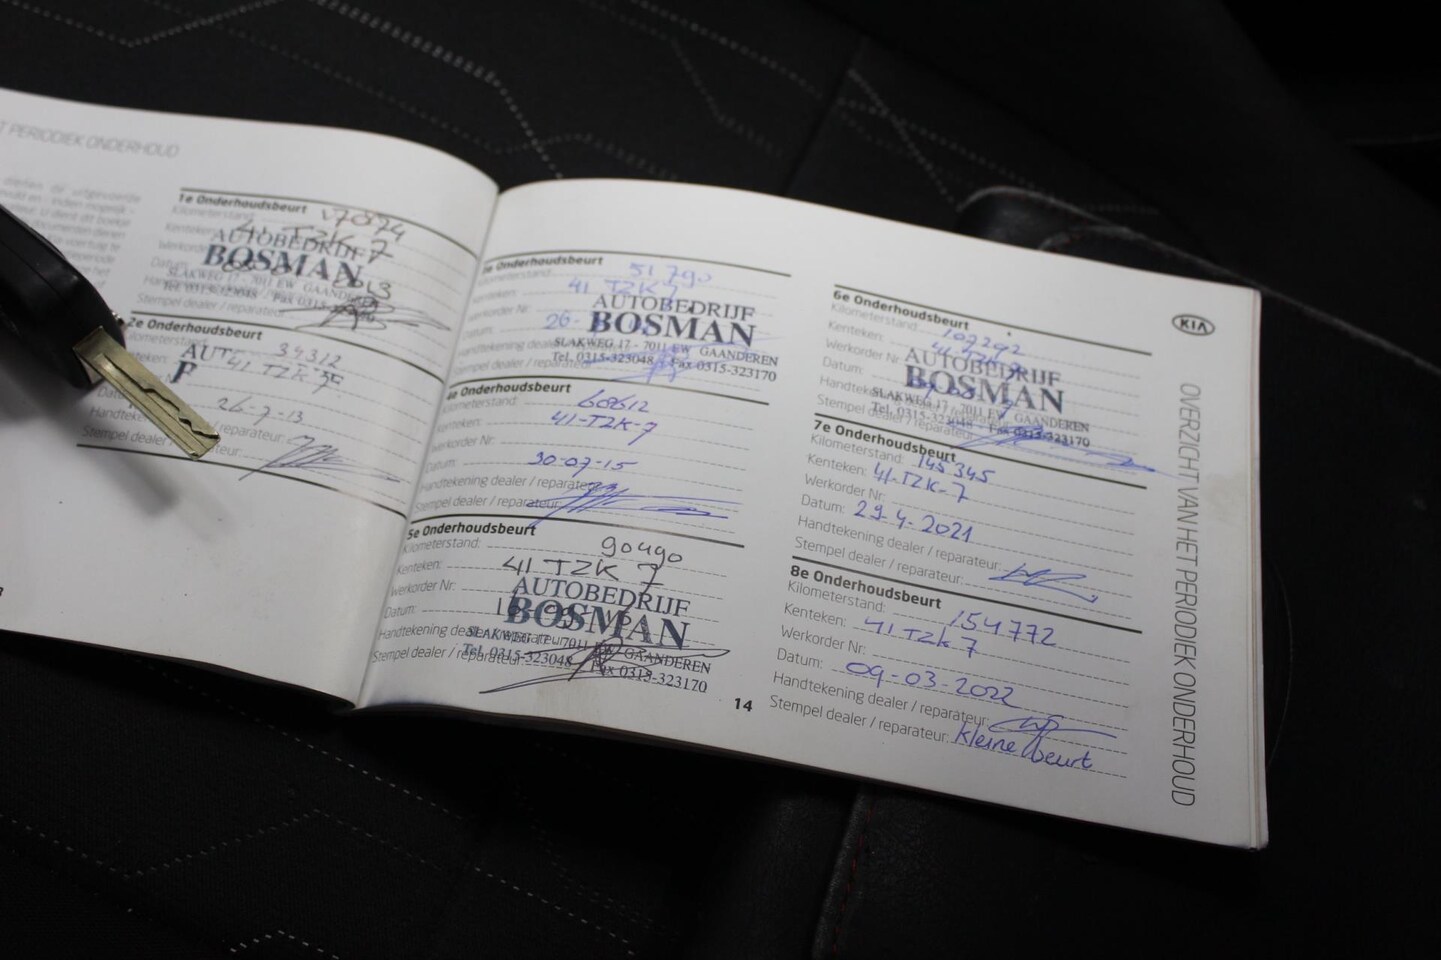 T PERIODIEK ONDERHOUD
1e Onderhoudsbeurt
Kilometerstand:
Kenteken: 41 TZK 7
AUTOBEDRIJF
BOSMAN
SLAKWEG 17 - 7011 EW GAANDEREN
Tel. 0315-323048 Fax 0315-
Stempel dealer / reparateur:
2e Onderhoudsbeurt
34312
41 TZK
26-7-13
/ reparateur:
Stempel dealer / reparateur:
Onderhoudsbeurt
Kilometerstand: 51790
Kenteken: 41 TZK 7
Werkorder Nr:
Datum: 26-
AUTOBEDRIJF
BOSMAN
SLAKWEG 17 - 7011 EW GAANDEREN
Tel. 0315-323048 Fax 0315-323170
4e Onderhoudsbeurt
Kilometerstand: 68612
Kenteken: 41-TZK-7
Werkorder Nr:
Datum: 30-07-15
Handtekening dealer / reparateur:
Stempel dealer / reparateur:
5e Onderhoudsbeurt
Kilometerstand: 90490
Kenteken: 41 TZK 7
Werkorder Nr:
Datum:
AUTOBEDRIJF
BOSMAN
SLAKWEG 17 - 7011 EW GAANDEREN
Tel. 0315-323048 Fax 0315-323170
Handtekening dealer / reparateur:
Stempel dealer / reparateur:
14
6e Onderhoudsbeurt
Kilometerstand: 107292
Kenteken:
Werkorder Nr:
Datum:
AUTOBEDRIJF
BOSMAN
SLAKWEG 17 - 7011 EW GAANDEREN
Tel. 0315-323048 Fax 0315-323170
Stempel dealer / reparateur:
7e Onderhoudsbeurt
Kilometerstand: 145345
Kenteken: 41-TZK-7
Werkorder Nr:
Datum: 29-4-2021
Handtekening dealer / reparateur:
Stempel dealer / reparateur:
8e Onderhoudsbeurt
Kilometerstand: 154772
Kenteken: 41 TZK 7
Werkorder Nr:
Datum: 09-03-2022
Handtekening dealer / reparateur:
Stempel dealer / reparateur: kleine beurt
KIA
OVERZICHT VAN HET PERIODIEK ONDERHOUD